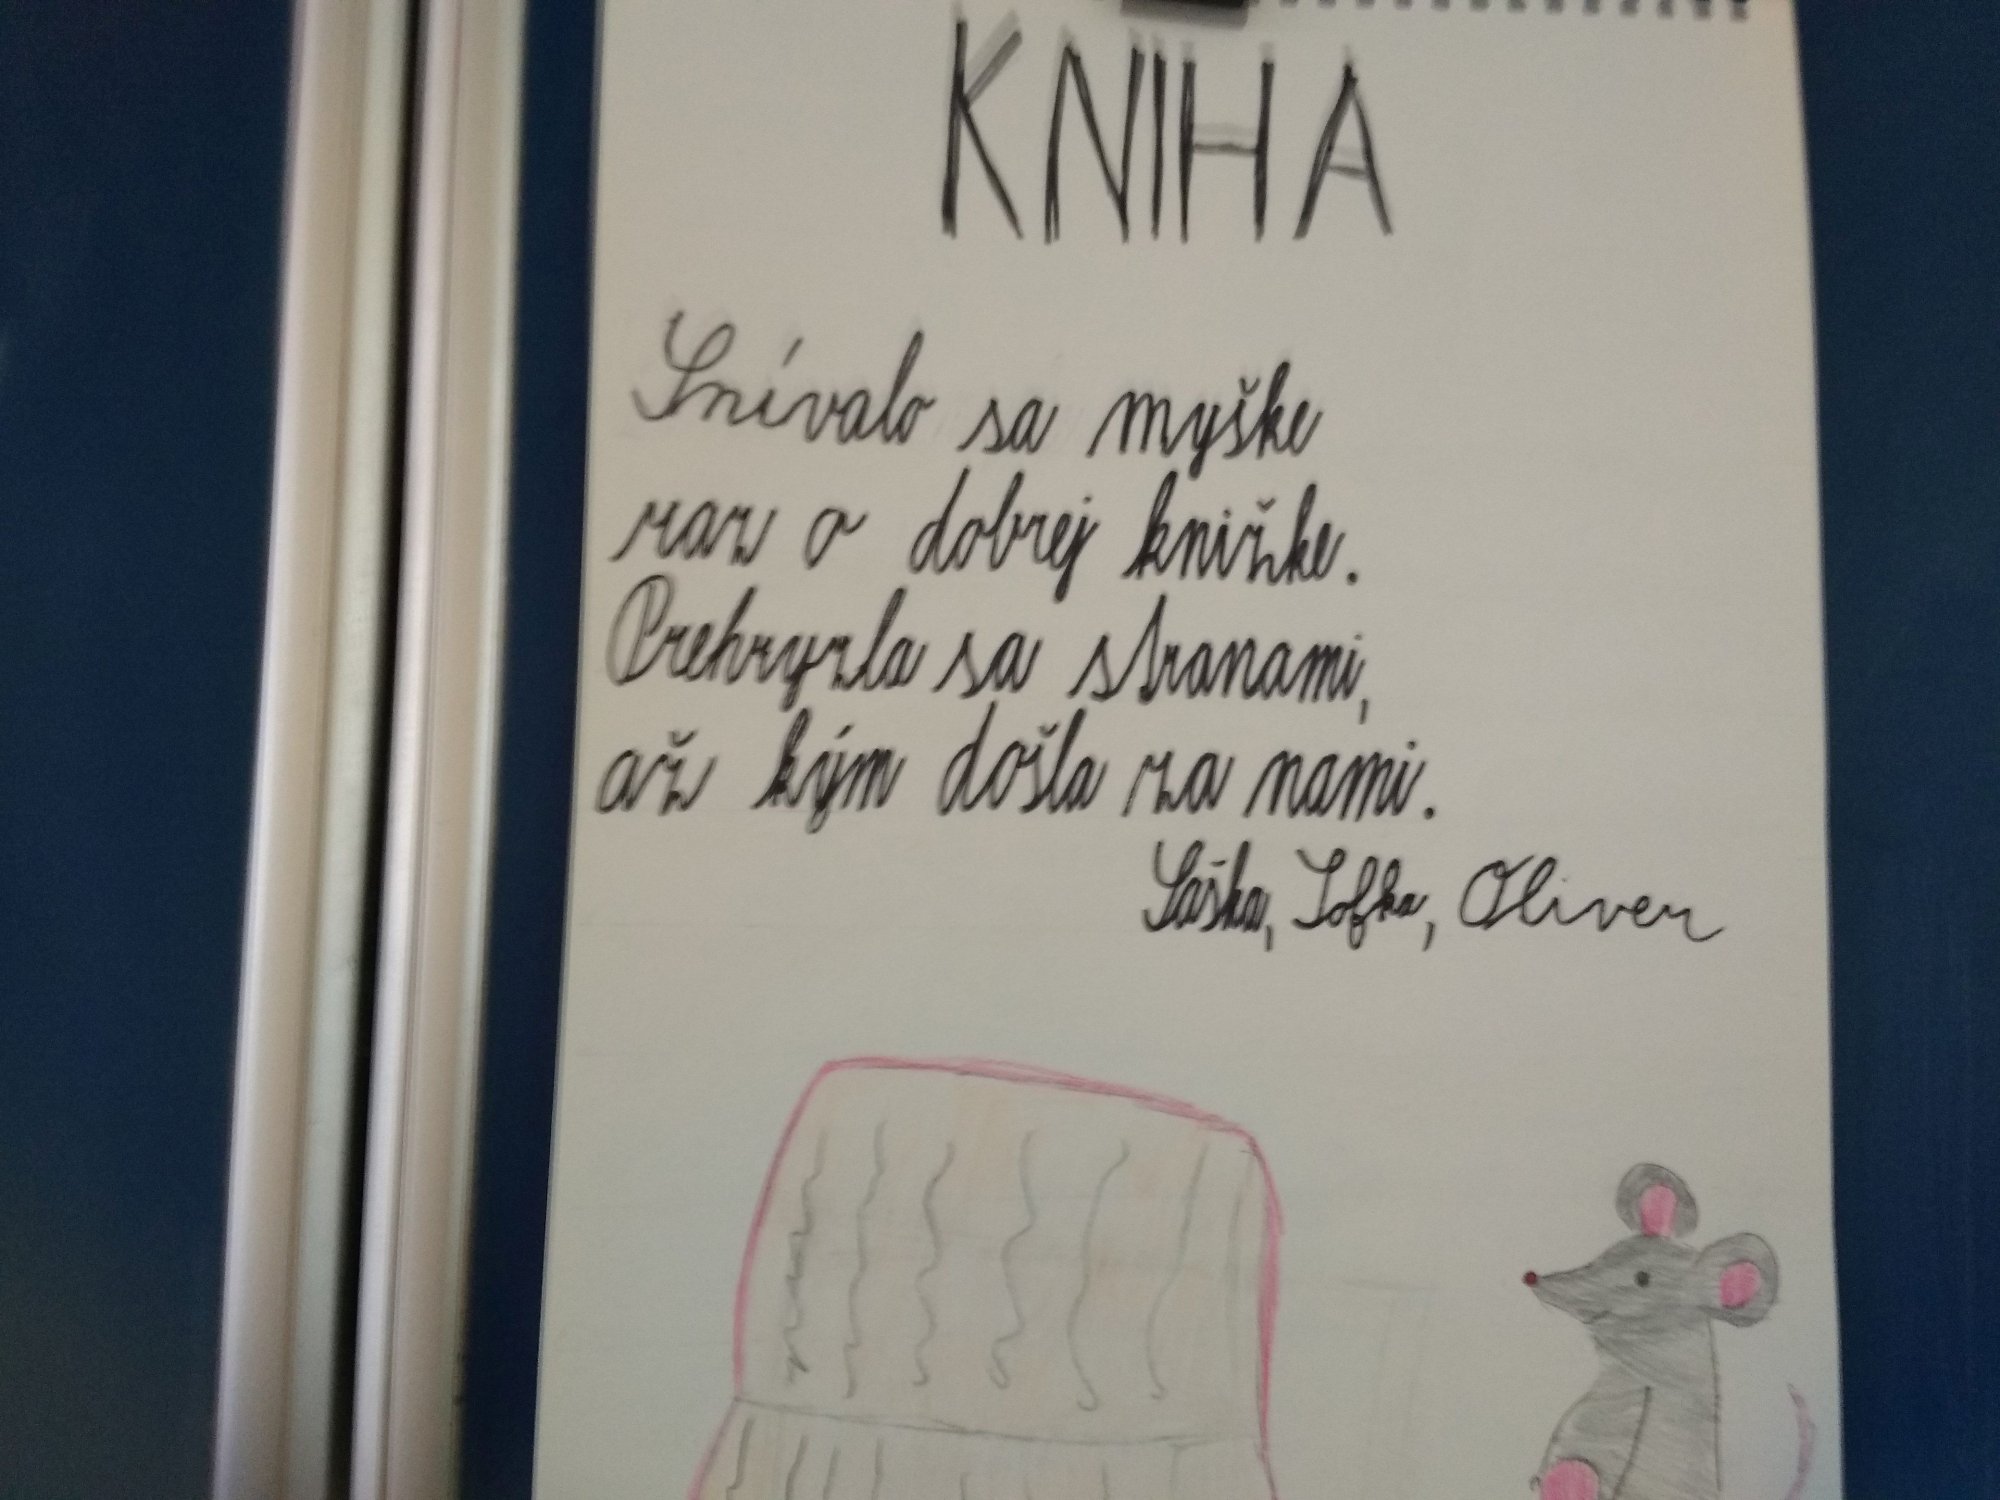 KNIHA
Snívalo sa myške
raz o dobrej knižke.
Prehryzla sa stranami,
až kým došla za nami.
Saška, Sofka, Oliver